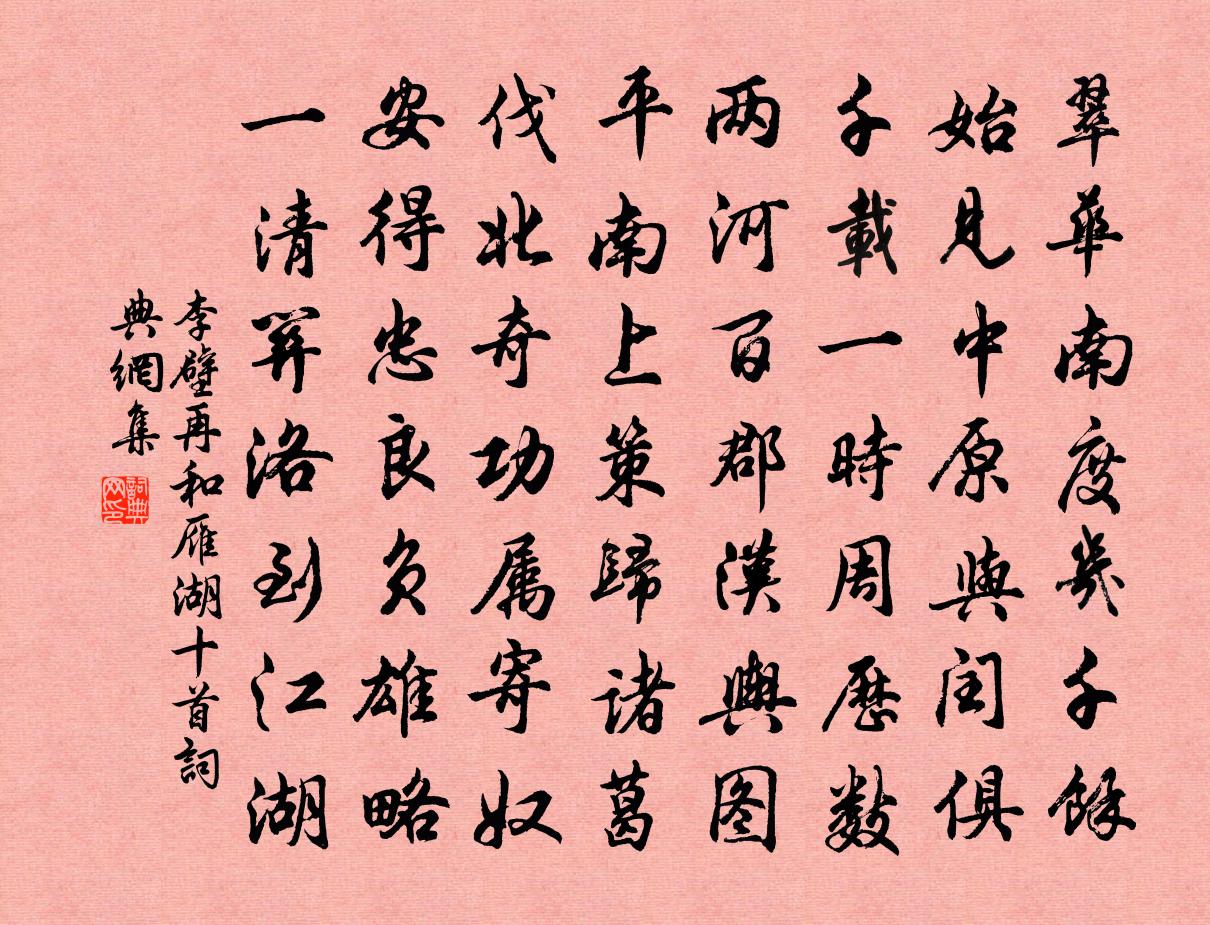 翠華南度幾千餘
始見中原與閏俱
千載一時周歷數
两河百郡漢輿图
平南上策歸諸葛
伐北奇功属寄奴
安得忠良負雄略
一清并洛到江湖
李壁再和雁湖十首詞
典網集
詞典
网印